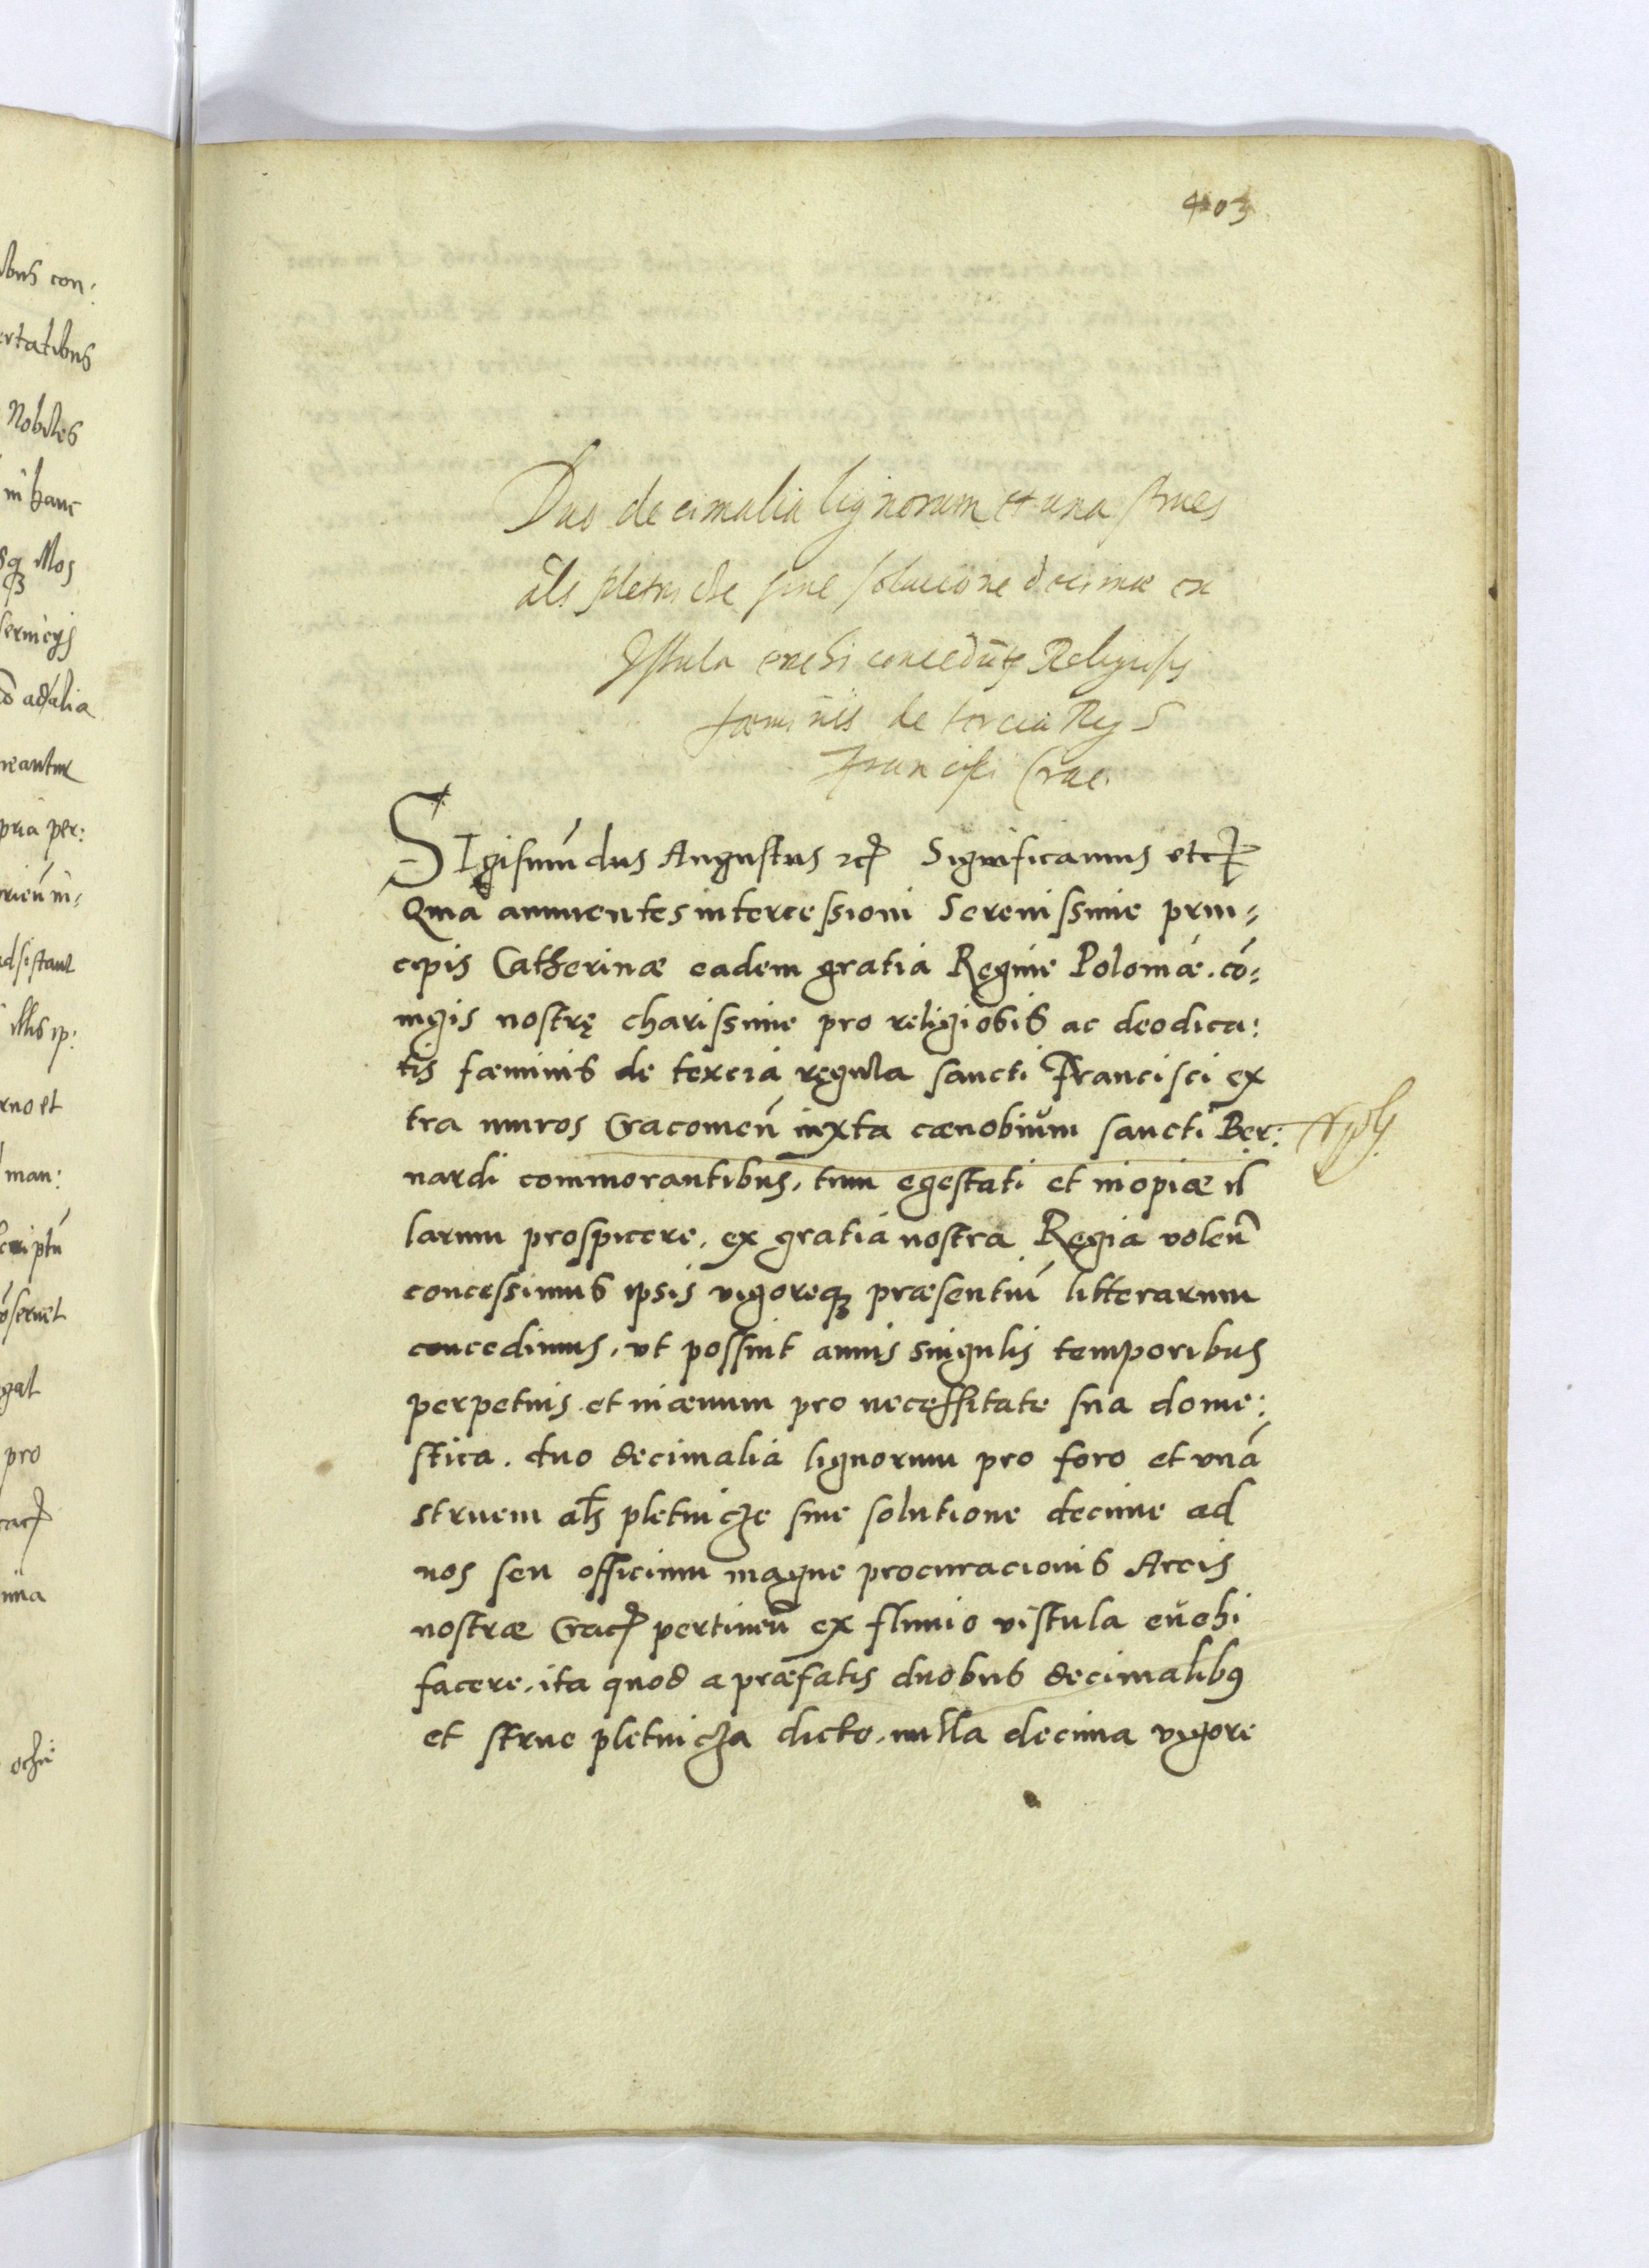 403
Duo decimalia lignorum et una strues
als pletnicze sine solucione decimae ex
Istula evehi concedūtꝛ Religiosis
foeminis de tercia Reg S
Francisci Crac.
SIgismūdus Augustus etc Significamus etc
Quia annuentes intercessioni Serenissime prin⸗
cipis Catherinæ eadem gratia Regine Poloniæ. cō⸗
iugis nostrę charissime pro religiosis ac deodica:
tis fœminis de tercia regula sancti Francisci ex
tra muros Cracouieñ iuxta cœnobium sancti Ber:
nardi commorantibus, tum egestati et inopiæ il
larum prospicere, ex gratia nostra Regia voleñ
concessimus ipsis vigoreqꝫ præsentiū litterarum
concedimus, vt possint annis singulis temporibus
perpetuis et in æuum pro necessitate sua dome:
stica. duo decimalia lignorum pro foro et vnā
struem als pletnicze sine solutione decime ad
nos seu officium magne procuracionis Arcis
nostræ Crac pertineñ ex fluuio vistula euehi
facere, ita quod a præfatis duobus decimalibꝰ
et strue pletnicza dicto, nulla decima vigore
bus con:
ertatibus
Nobiles
in hanc
sqꝫ Mos
seruicijs
ad alia
neantur
pria per:
adsistant
illis ip:
rno et
man:
seruet
gat
pro